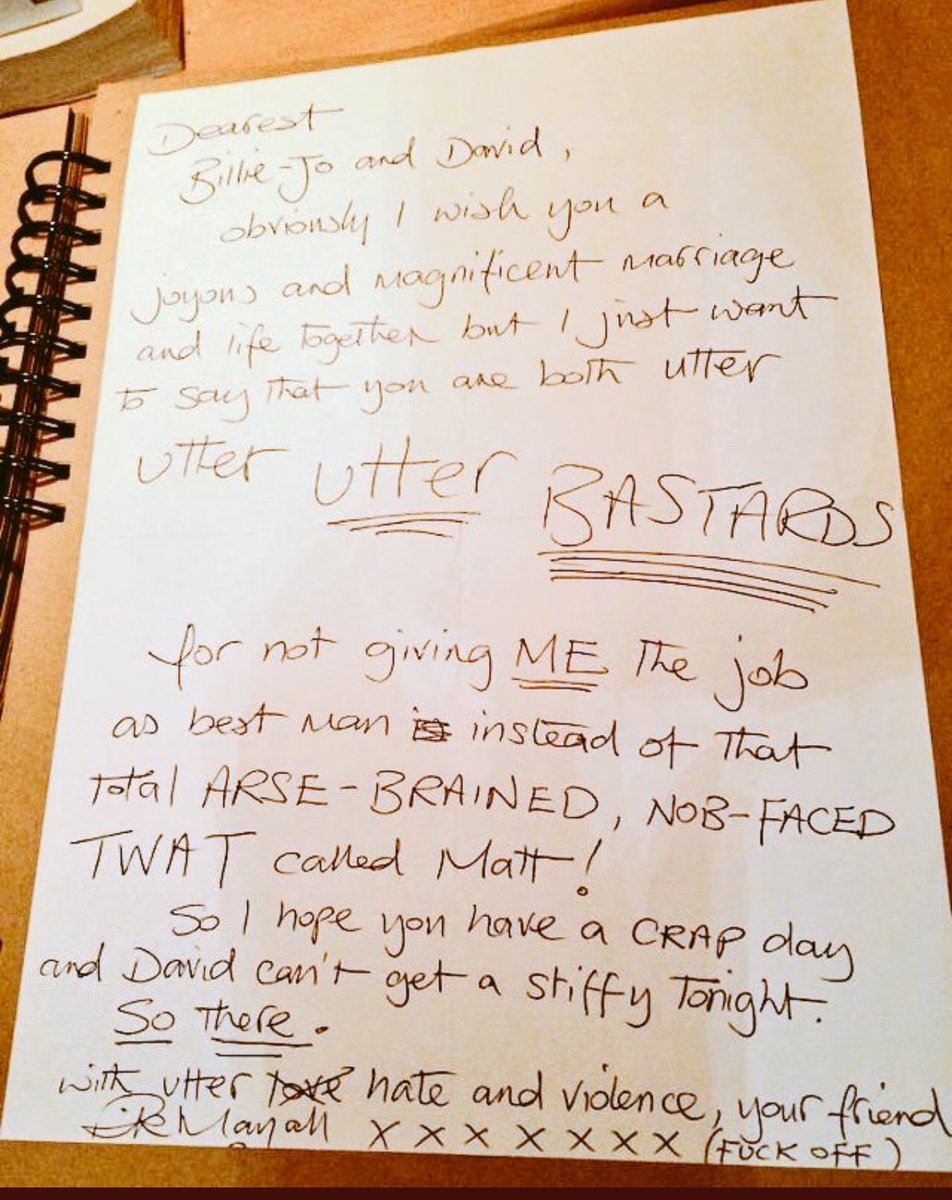 Dearest
Billie-Jo and David,
obviously I wish you a
joyous and magnificent marriage
and life together but I just want
to say that you are both utter
utter utter BASTARDS
for not giving ME the job
as best man instead of that
total ARSE-BRAINED, NOB-FACED
TWAT called Matt!
So I hope you have a CRAP day
and David can't get a stiffy tonight.
So there.
with utter love hate and violence, your friend
Mayall X X X X X X X (FUCK OFF)